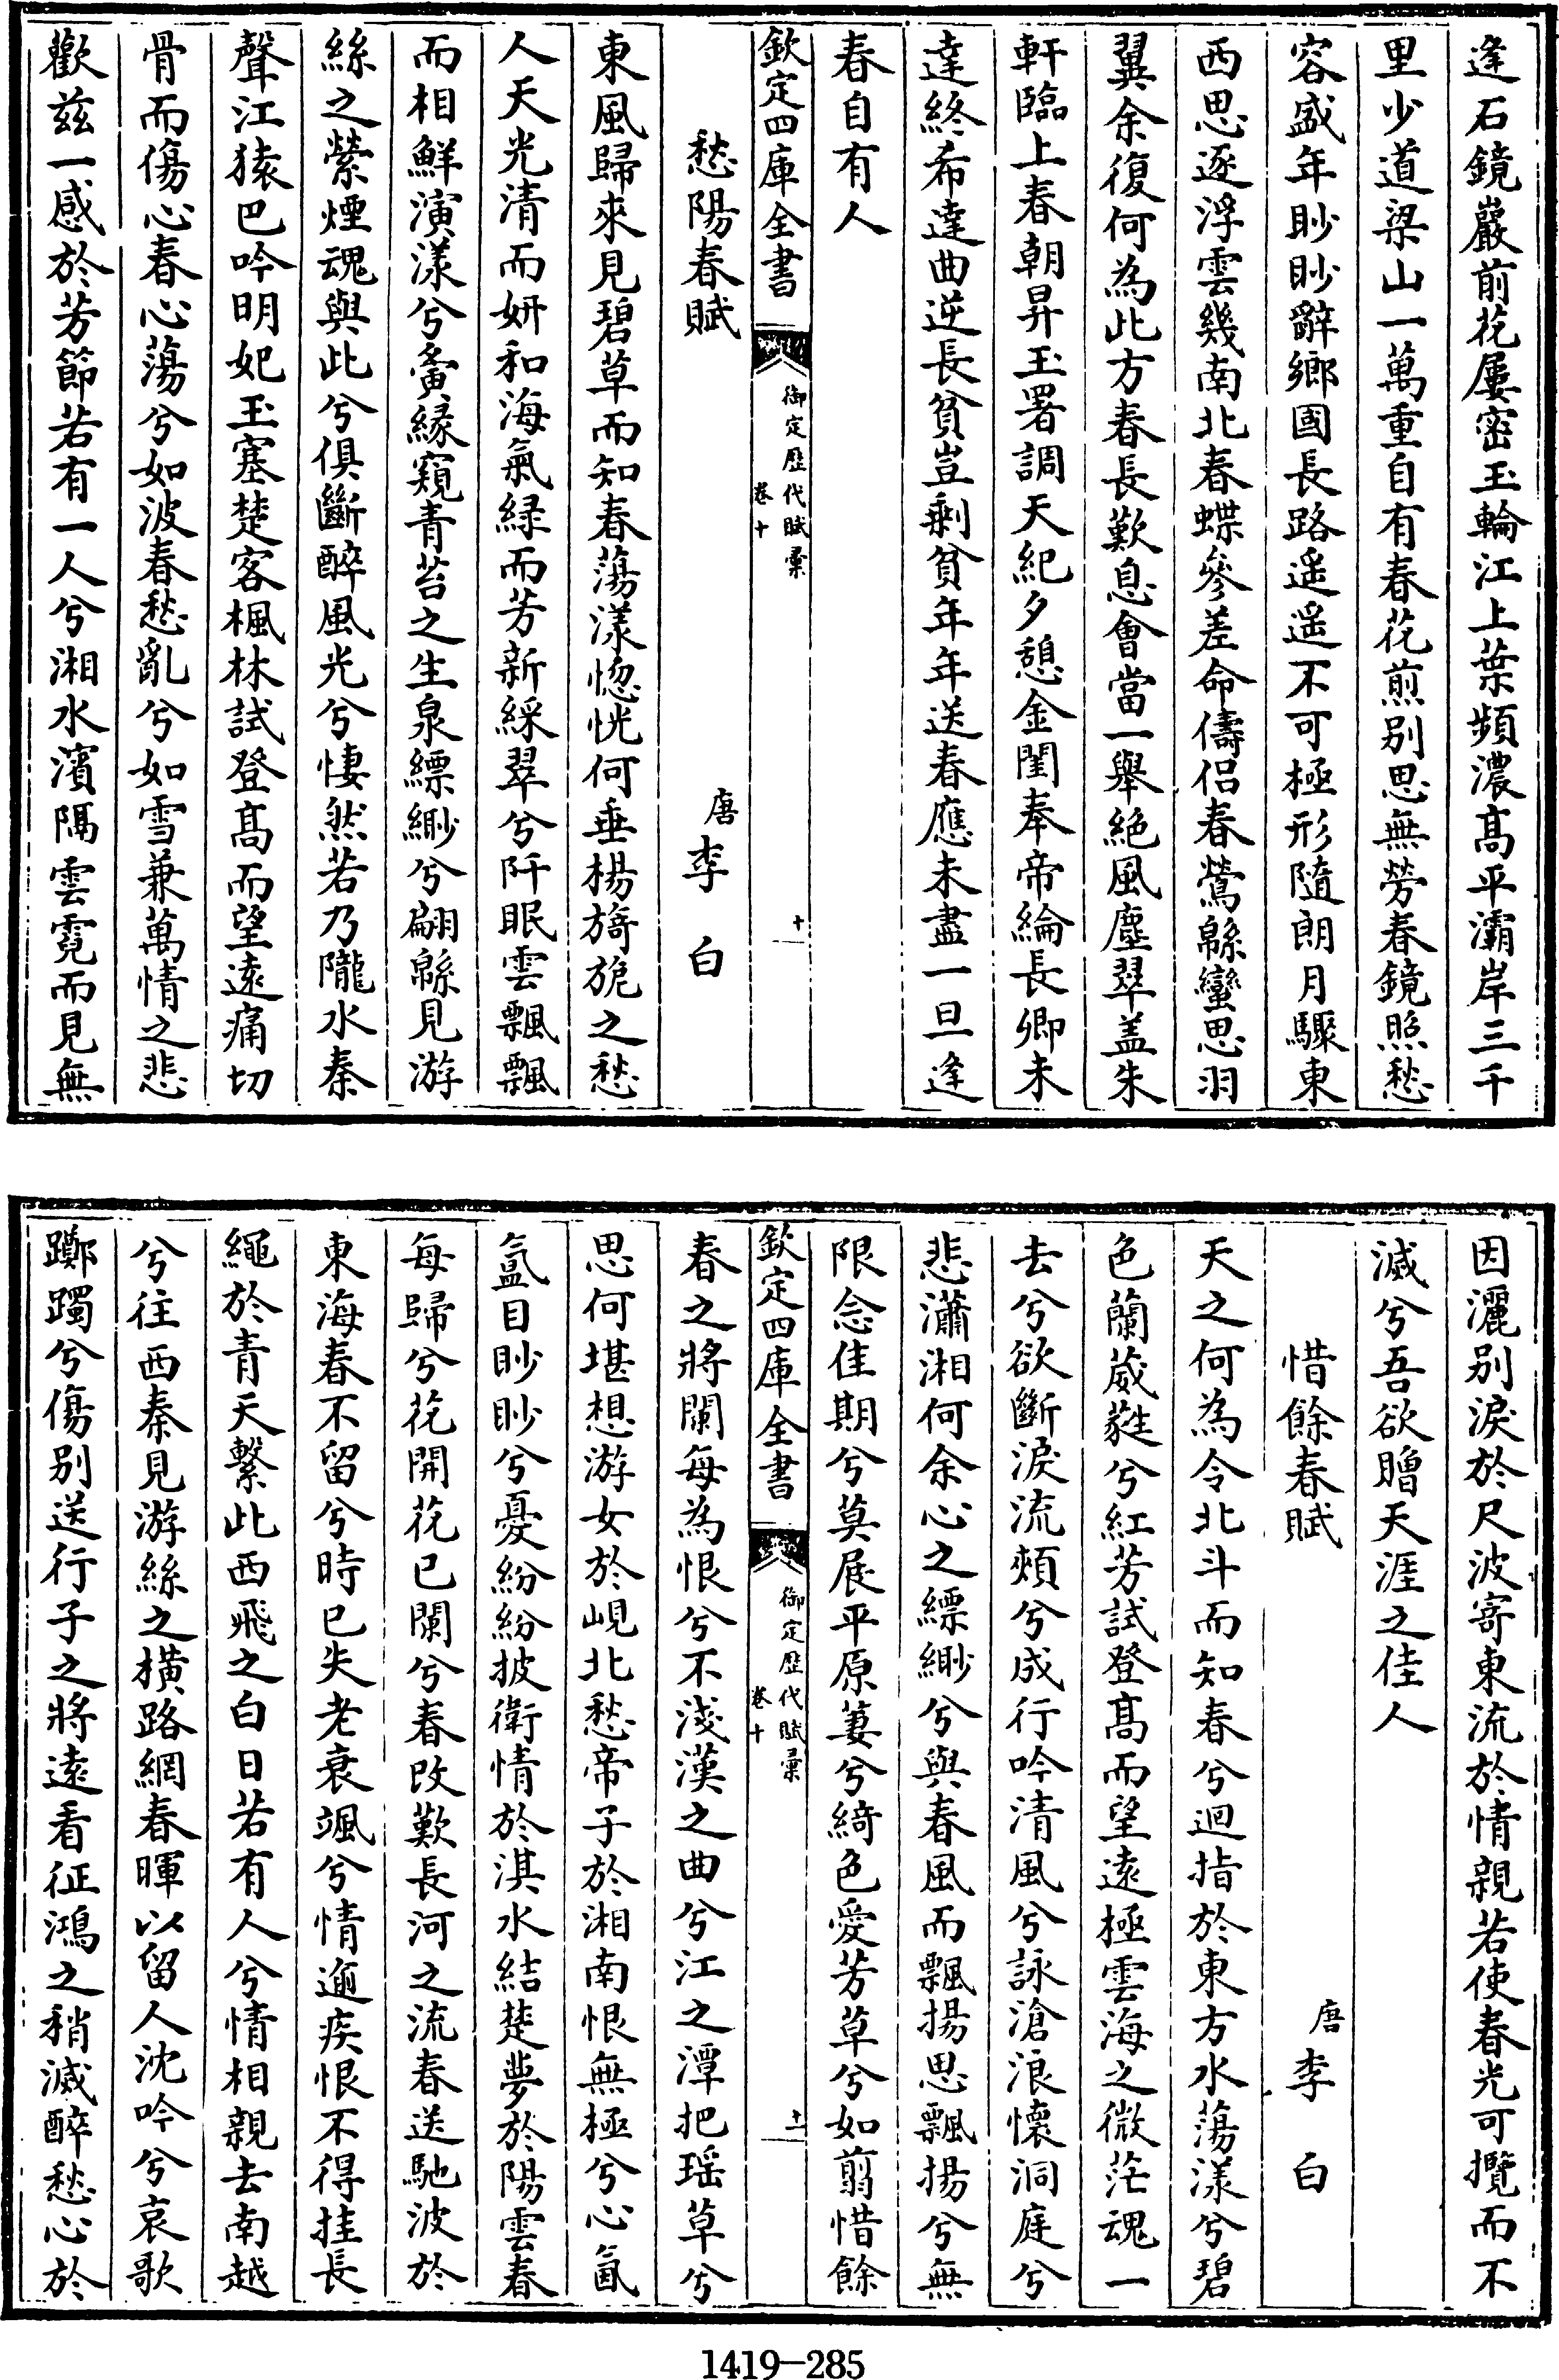 逢石鏡巖前花屢密玉輪江上葉頻濃髙平灞岸三千
里少道梁山一萬重自有春花煎别思無勞春鏡照愁
容盛年眇眇辭鄉國長路遥遥不可極形隨朗月驟東
西思逐浮雲幾南北春蝶參差命儔侣春鶯緜蠻思羽
翼余復何為此方春長歎息會當一舉絶風塵翠盖朱
軒臨上春朝昇玉署調天紀夕憩金閨奉帝綸長卿未
達終希達曲逆長貧豈剰貧年年送春應未盡一旦逢
春自有人
欽定四庫全書
御定歴代賦彙
卷十
十
愁陽春賦
唐李白
東風歸來見碧草而知春蕩漾惚恍何垂楊旖旎之愁
人天光清而妍和海氣緑而芳新綵翠兮阡眠雲飄飄
而相鮮演漾兮夤緣窺青苔之生泉縹緲兮翩緜見游
絲之縈煙魂與此兮俱斷醉風光兮悽然若乃隴水秦
聲江猿巴吟明妃玉塞楚客楓林試登髙而望遠痛切
骨而傷心春心蕩兮如波春愁亂兮如雪兼萬情之悲
歡兹一感於芳節若有一人兮湘水濱隔雲霓而見無
因灑别淚於尺波寄東流於情親若使春光可攬而不
滅兮吾欲贈天涯之佳人
惜餘春賦
唐李白
天之何為令北斗而知春兮迴指於東方水蕩漾兮碧
色蘭葳蕤兮紅芳試登髙而望遠極雲海之微茫魂一
去兮欲斷淚流頰兮成行吟清風兮詠滄浪懷洞庭兮
悲瀟湘何余心之縹緲兮與春風而飄揚思飄揚兮無
限念佳期兮莫展平原萋兮綺色愛芳草兮如翦惜餘
欽定四庫全書
御定歴代賦彙
卷十
十一
春之將闌每為恨兮不淺漢之曲兮江之潭把瑶草兮
思何堪想游女於峴北愁帝子於湘南恨無極兮心氳
氲目眇眇兮憂紛紛披衛情於淇水結楚夢於陽雲春
每歸兮花開花已闌兮春改歎長河之流春送馳波於
東海春不留兮時已失老衰颯兮情逾疾恨不得挂長
繩於青天繫此西飛之白日若有人兮情相親去南越
兮往西秦見游絲之横路網春暉以留人沈吟兮哀歌
躑躅兮傷别送行子之將遠看征鴻之稍滅醉愁心於
1419—285